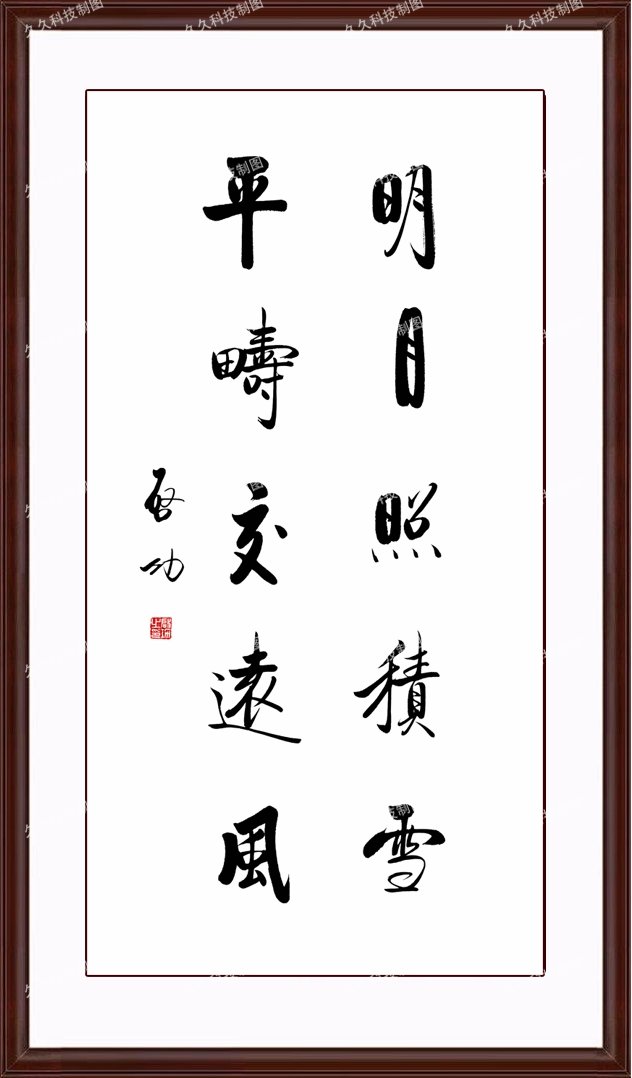 久久科技制图 久久科技制图 久久科技制图 久久科技制图
明月照積雪
平疇交遠風
启功